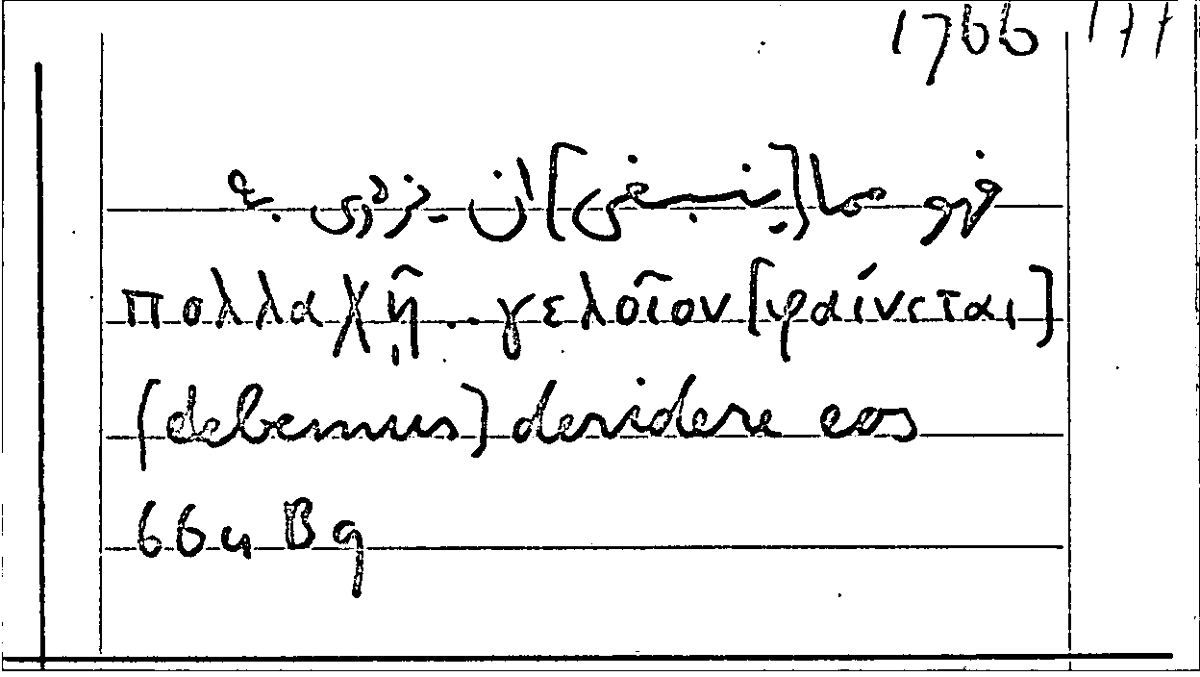 1766 177
فهو مما [ينبغى] ان نزدرى به
πολλαχῇ .. γελοῖον [φαίνεται]
[debemus] deridere eos
664 B 9